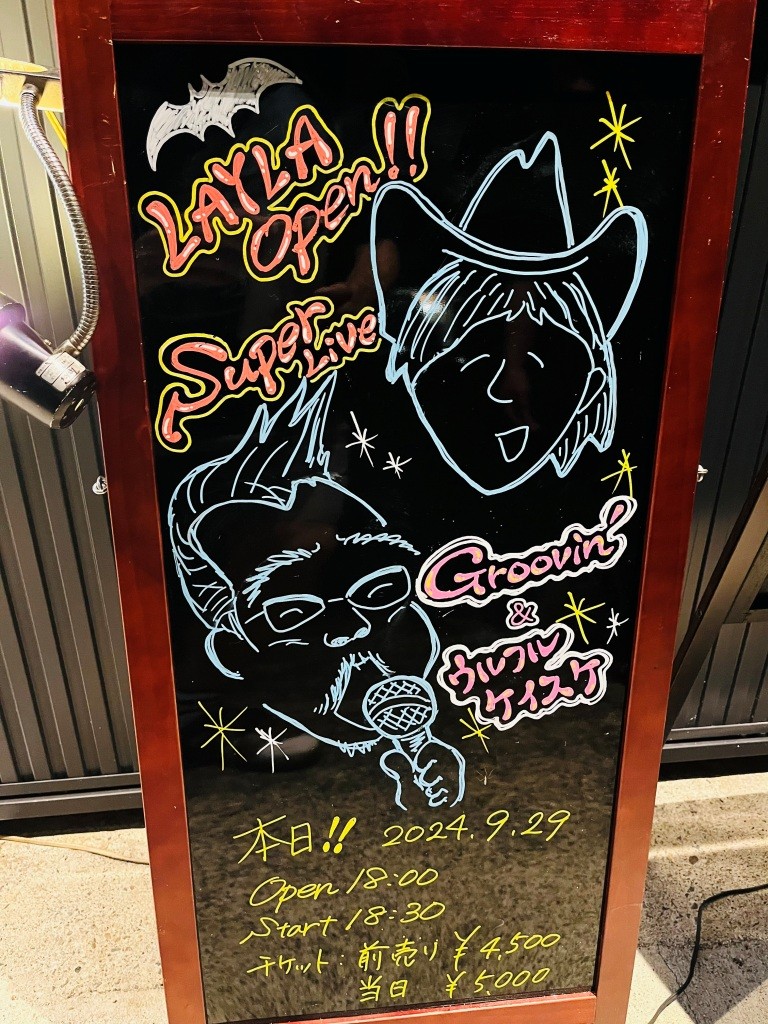 LAYLA
Open!!
Super
Live
Groovin'
&
ウルフル
ケイスケ
本日!! 2024.9.29
Open 18:00
Start 18:30
チケット: 前売り ¥4,500
当日 ¥5,000